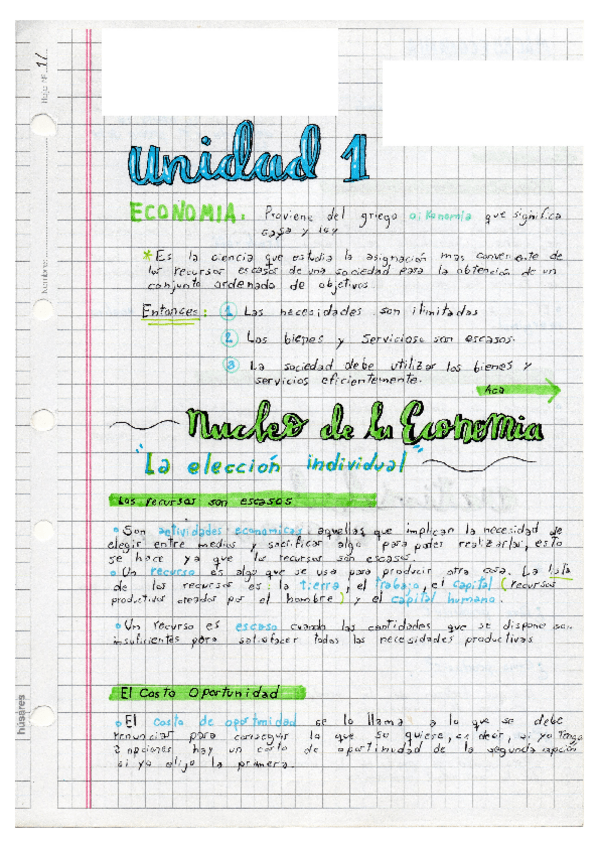 Hoja Nº 1/
Nombre:
Unidad 1
ECONOMIA: Proviene del griego oikonomia que significa
casa y ley
* Es la ciencia que estudia la asignación mas conveniente de
los recursos escasos de una sociedad para la obtención de un
conjunto ordenado de objetivos.
Entonces: 1 Las necesidades son ilimitadas
2 Los bienes y servicioso son escasos.
3 La sociedad debe utilizar los bienes y
servicios eficientemente.
Aca
Nucleo de la Economia
"La elección individual"
Los recursos son escasos
Son actividades economicas aquellas que implican la necesidad de
elegir entre medios y sacrificar algo para poder realizarlas, esto
se hace ya que los recursos son escasos.
Un recurso es algo que se usa para producir otra cosa. La lista
de los recursos es: la tierra, el trabajo, el capital (recursos
productivos creados por el hombre) y el capital humano.
Un recurso es escaso cuando las cantidades que se dispone son
insuficientes para satisfacer todas las necesidades productivas
El Costo Oportunidad
El costo de oportunidad se lo llama a lo que se debe
renunciar para conseguir lo que se quiere, es decir, si yo tengo
2 opciones hay un costo de oportinudad de la segunda opción
si yo elijo la primera.
húsares